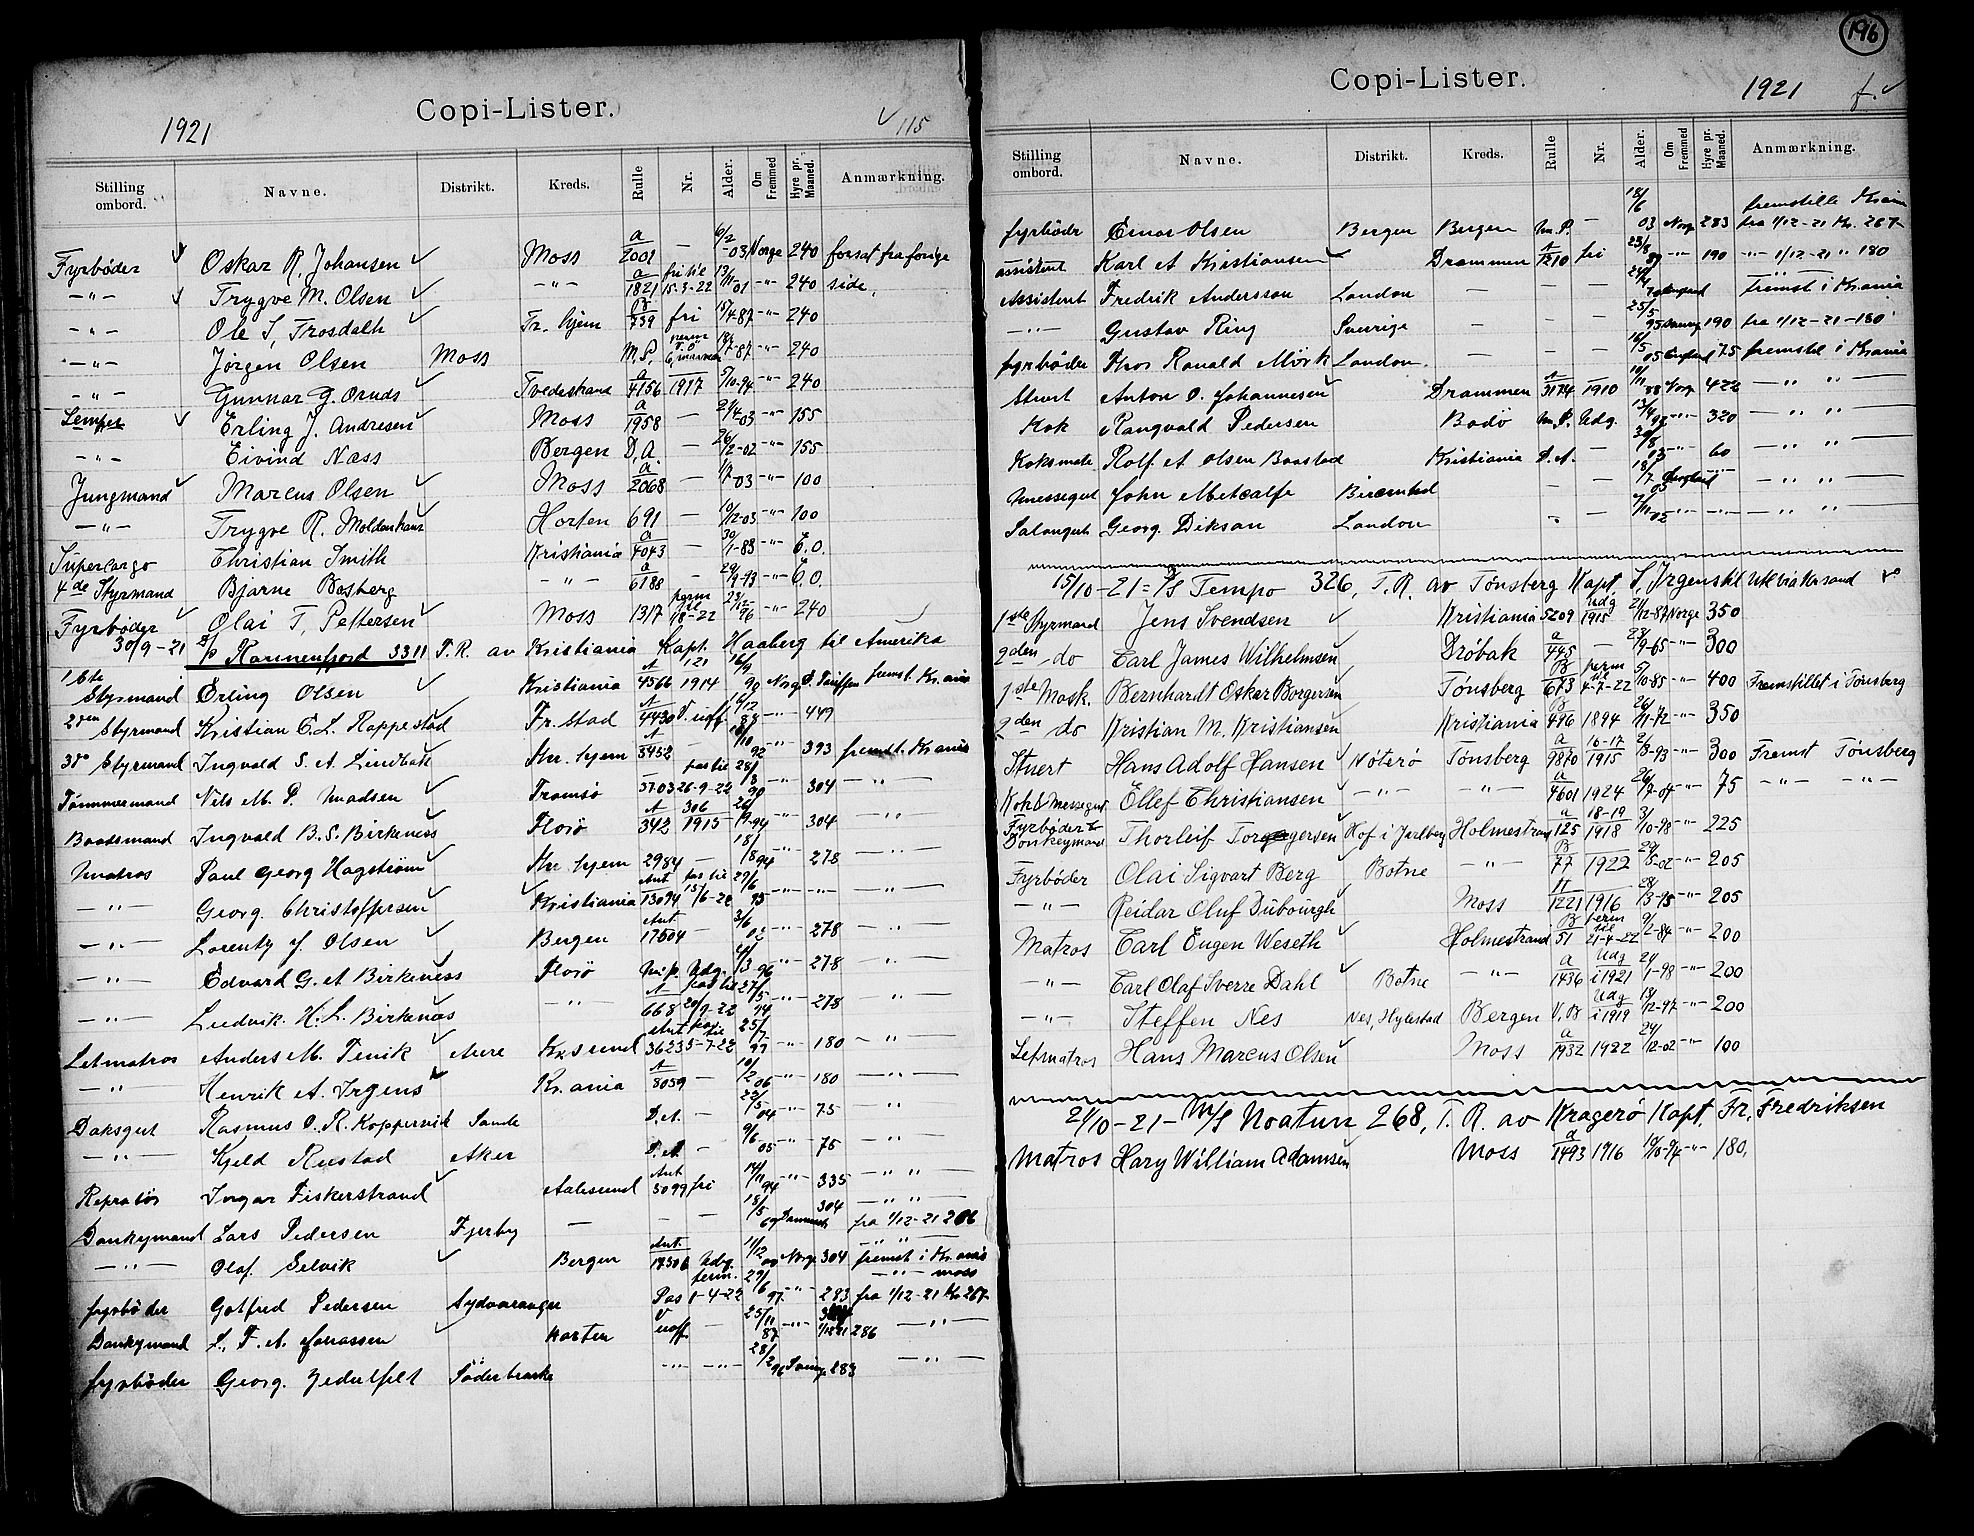 1921 Copi-Lister. ✓ 115
Stilling ombord. Navne. Distrikt. Kreds. Rulle Nr. Alder. Om Fremmed Hyre pr. Maaned. Anmærkning.
Fyrbøder ✓ Oskar R. Johansen ✓ Moss a/2001 — 6/2-03 Norge 240 forsat fra forige
—"— ✓ Trygve M. Olsen ✓ —"— a/1821 fri til 15-3-22 13/11-01 —"— 240 side.
—"— Ole S. Trosdalh ✓ Fr. hjem 739 fri 15/4-87 —"— 240
—"— Jørgen Olsen Moss M.P. -87 —"— 240
—"— Gunnar G. Oruds ✓ Tvedestrand a/4156 1917 5/10-94 —"— 240
Lemper ✓ Erling J. Andresen ✓ Moss a/1958 — 21/4-03 —"— 155
—"— Eivind Næss Bergen D.A. — 26/2-02 —"— 155
Jungmand ✓ Marcus Olsen ✓ Moss a/2068 — -03 —"— 100
—"— Trygve R. Moldenhaur Horten 691 — 10/12-03 —"— 100
Supercargo Christian Smith Kristiania a/4043 — 30/1-83 —"— 6.0.
4de Styrmand Bjarne Bosberg —"— a/6188 — 29/9-93 —"— 6.0.
Fyrbøder ✓ Olai T. Pettersen ✓ Moss 1317 perm til 1/8-22 23/12-96 —"— 240
30/9-21 D/S Karmenfjord 3311 T.R. av Kristiania Kapt. Haaberg til Amerika
1ste Styrmand Erling Olsen ✓ Kristiania A/4566 121/1914 16/9 90 Norg D. Tariffen fremst. Kr.ania
2den Styrmand Kristian C.L. Rappestad Fr.stad A/4430 V. uoff 16/12 88 —"— 449
3die Styrmand Ingvald S. A. Lindbak Thr. hjem A/5452 — 18/10 92 —"— 393 fremst. Kr.ania
Tømmermand Nils M. P. Madsen ✓ Tromsø 5703 pas til 26-9-22 28/3 90 —"— 304 —"—
Baadsmand Ingvald B.S. Birkeness Florø A/342 306/1915 26/9-94 —"— 304 —"—
Matros Paul Georg Hagstrøm ✓ Thr hjem 2984 — 18/8 94 —"— 278 —"—
—"— Georg. Christoffersen ✓ Kristiania Ant/13094 pas til 15/6-22 29/6 93 —"— —"— —"—
—"— Lorenty J. Olsen ✓ Bergen Ant/17504 — 3/6 02 —"— 278 —"—
—"— Edvard G. A Birkeness Florø M.P. Udg. 4/3-96 —"— 278 —"—
—"— Ludvik. H.L. Birkenæs —"— A/668 pas til 20/9-22 27/5 94 —"— 278 —"—
Letmatros Anders M. Tenik ✓ Aure Kr.sund Ant/3623 pas til 5-7-22 25/7 97 —"— 180 —"—
—"— Henrik A. Irgens ✓ Kr.ania A/8059 — 10/2 06 —"— 180 —"—
Daksgut Rasmus O. R. Koppervik Sande D.A. — 22/5 04 —"— 75 —"—
—"— Kjeld Rustad Aker D.A. — 9/6 05 —"— 75 —"—
Repratør Ingar Fiskerstrand Aalesund Ant/3099 fri 14/11 94 —"— 335 —"—
Donkymand Lars Pedersen Fjerby — — — 18/5 69 Danmark 304 fra 1/12-21 286
—"— Olaf. Selvik ✓ Bergen Ant./17306 Udg. 11/12 00 Norge 304 fremst i Kr.ania
fyrbøder Gotfred Pedersen Sydvaranger Pas ferm. 1-4-22 29/6 97 —"— 283 —"— moss fra 1/12-21 Kr 267
Donkymand L. F. A. Jonassen ✓ Horten V uoff — 25/11 87 —"— 1/12 21 286 —"—
fyrbøder Georg. Zedelfelt Söderbearke —"— —"— 28/2 96 Sverige 283 —"—
196
Copi-Lister. 1921 f. ✓
Stilling ombord. Navne. Distrikt. Kreds. Rulle Nr. Alder. Om Fremmed Hyre pr. Maaned. Anmærkning.
fyrbødr Einar Olsen Bergen Bergen M.P. — 18/6 03 Norge 283 fremstille Kr.ania fra 1/12-21 Kr. 267
assistent Karl A Kristiansen ✓ Drammen A/1210 fri 23/8 89 —"— 190 —"— 1/12-21 " 180
Assistent Fredrik Andersson London — — England fremst i Kr.ania
—"— Gustav Ring Sverige — — 25/5 95 Sverig 190 fra 1/12-21-180
fyrbøder Thor Ronald Mørk London — — 16/5 05 England 75 fremstil i Kr.ania
Stuert Anton O. Johannesen ✓ Drammen A/3174 1910 18/11 88 Norg 422 —"— "—
Kok Rangvald Pedersen Bodø M.P. Udg. 13/4 98 —"— 320 —"— "—
Koksmate Rolf. A Olsen Baastad Kristiania D.A. — 30/8 03 —"— 60 —"— "—
Messegut John Metcalfe — — 18/7 05 England —"— —"— "—
Salongut Georg. Dikson London — — 7/11 02 —"— —"— —"— "—
15/10-21 = D/S Tempo 326, T.R. av Tønsberg Kapt. S. Irgens til
1ste Styrmand Jens Svendsen ✓ Kristiania 5209 Udg 1915 21/12-87 Norge 350
2den do Carl James Wilhelmsen Drøbak a/445 — 27/9-65 —"— 300
1ste Mask. Bernhardt Oskar Borgersen Tønsberg B/673 perm til 4-7-22 5/10-85 —"— 400 Fremstillet i Tønsberg
2den do Kristian M. Kristiansen Kristiania B/496 1894 26/11-72 —"— 350
Stuert Hans Adolf Hansen ✓ Nøterø Tønsberg a/9870 16-17/1915 2/8-93 —"— 300 Fremst Tønsberg
Kok & Messegut Ellef Christiansen —"— —"— a/4601 1924 26/7-04 —"— 75 —"— —"—
Fyrbøder & Donkeymand Thorleif Torgersen Hof i Jarlberg Holmestrand a/125 18-19/1918 3/10-98 —"— 225
Fyrbøder Olai Sigvart Berg Botne —"— B/77 1922 29/5-02 —"— 205
—"— Reidar Oluf Dubourgh Moss A/1221 1916 28/3-95 —"— 205
Matros Carl Eugen Weseth ✓ Holmestrand B/51 perm til 21-4-22 9/2-84 —"— 200
—"— Carl Olaf Sverre Dahl ✓ Botne —"— a/1436 Udg i 1921 24/1-98 —"— 200
—"— Steffen Nes Nes, Hylestad Bergen V. B Udg i 1919 18/12-97 —"— 200
Letmatros Hans Marcus Olsen ✓ Moss a/1932 1922 24/12-02 —"— 100
21/10-21- M/S Noatun 268, T.R. av Kragerø Kapt. Fr. Fredriksen
Matros Hary William Adamsen Moss a/1493 1916 10/10-94 —"— 180.